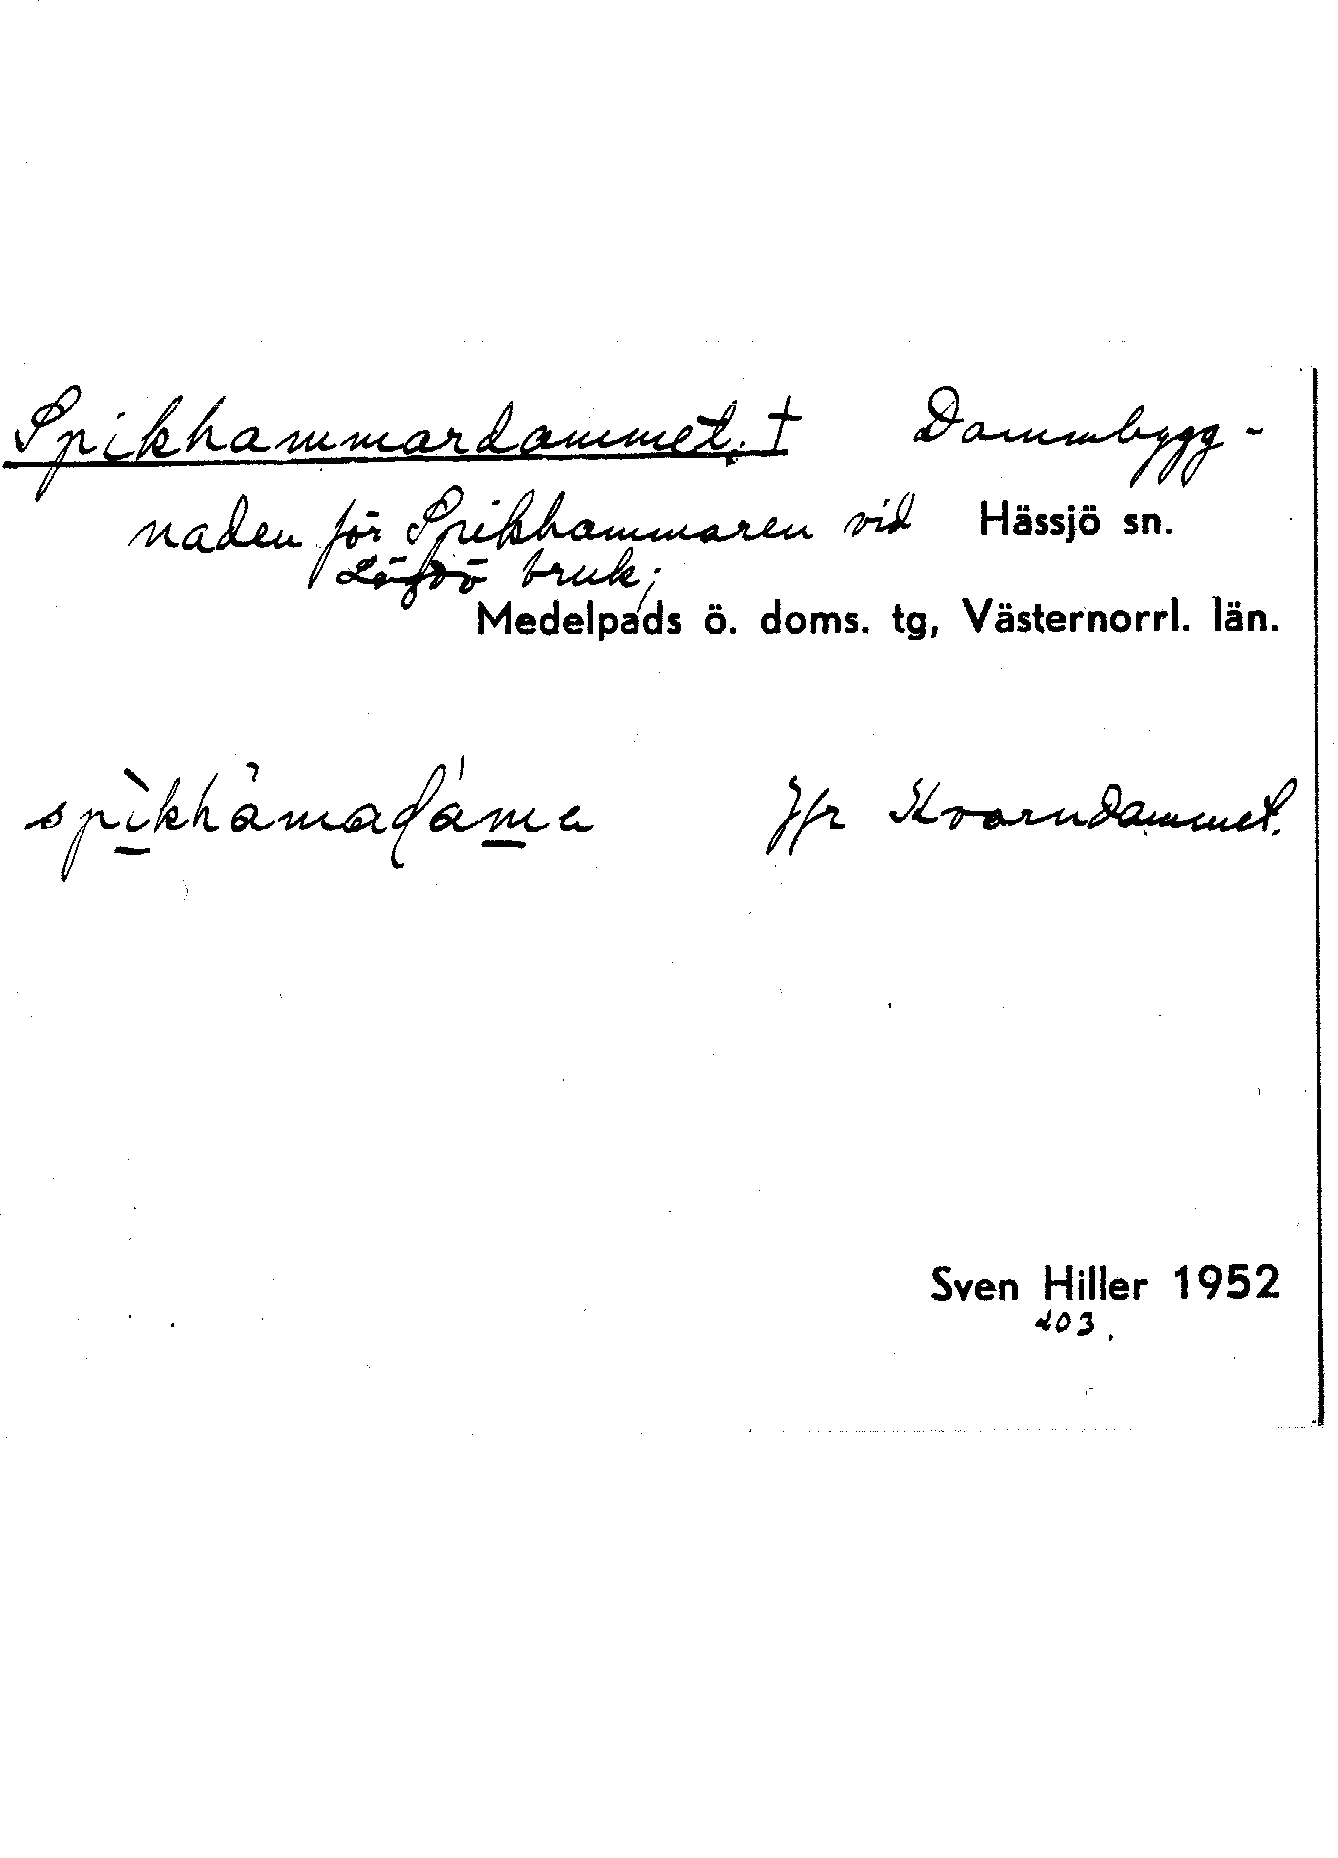 Spikhammardammet. † Dammbygg-
naden för Spikhammaren vid Hässjö sn.
Lögdö bruk;
Medelpads ö. doms. tg, Västernorrl. län.
Jfr Kvarndammet.
Sven Hiller 1952
203.